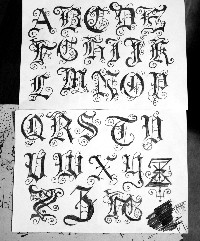 A B C D E
F G H I J K
L M N O P
Q R S T U
V W X Y Z
Z